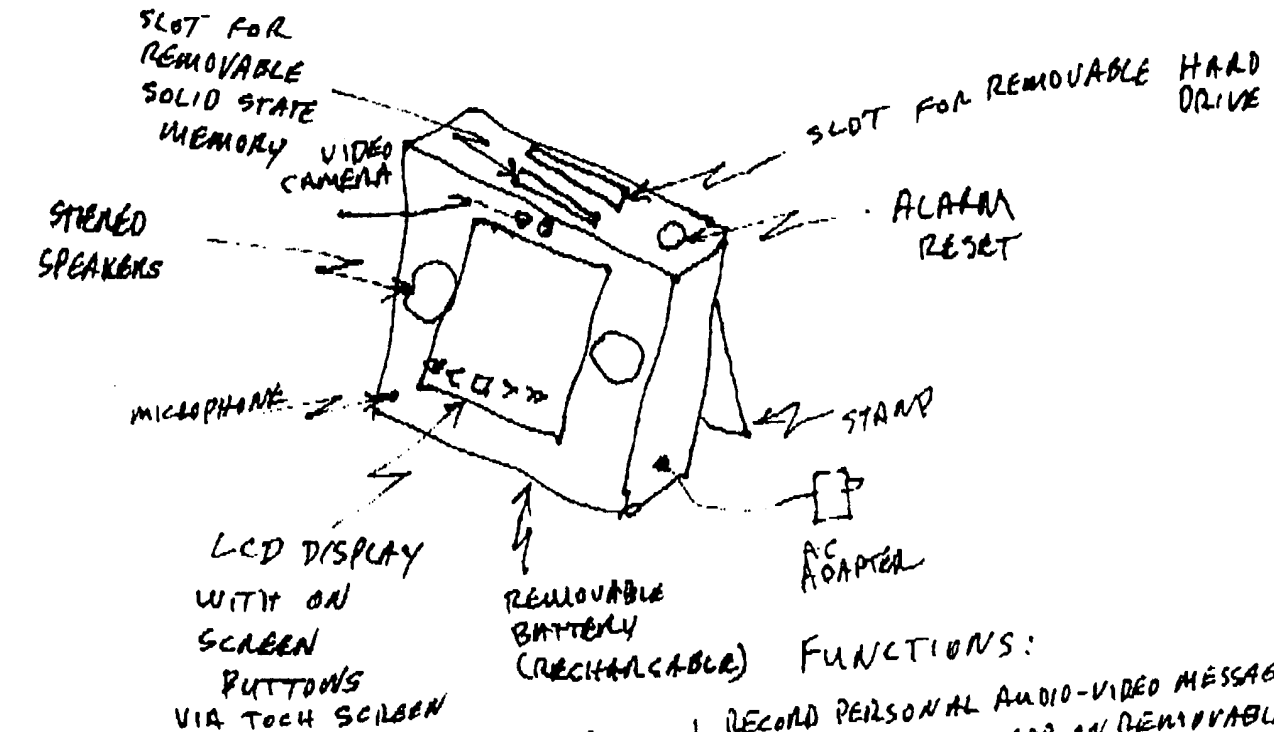 SLOT FOR
REMOVABLE
SOLID STATE
MEMORY
VIDEO
CAMERA
SLOT FOR REMOVABLE HARD
DRIVE
STEREO
SPEAKERS
ALARM
RESET
MICROPHONE
STAND
LCD DISPLAY
WITH ON
SCREEN
BUTTONS
VIA TOCH SCREEN
REMOVABLE
BATTERY
(RECHARGABLE)
AC
ADAPTER
FUNCTIONS:
1 RECORD PERSONAL AUDIO-VIDEO MESSAGE
ON REMOVABL